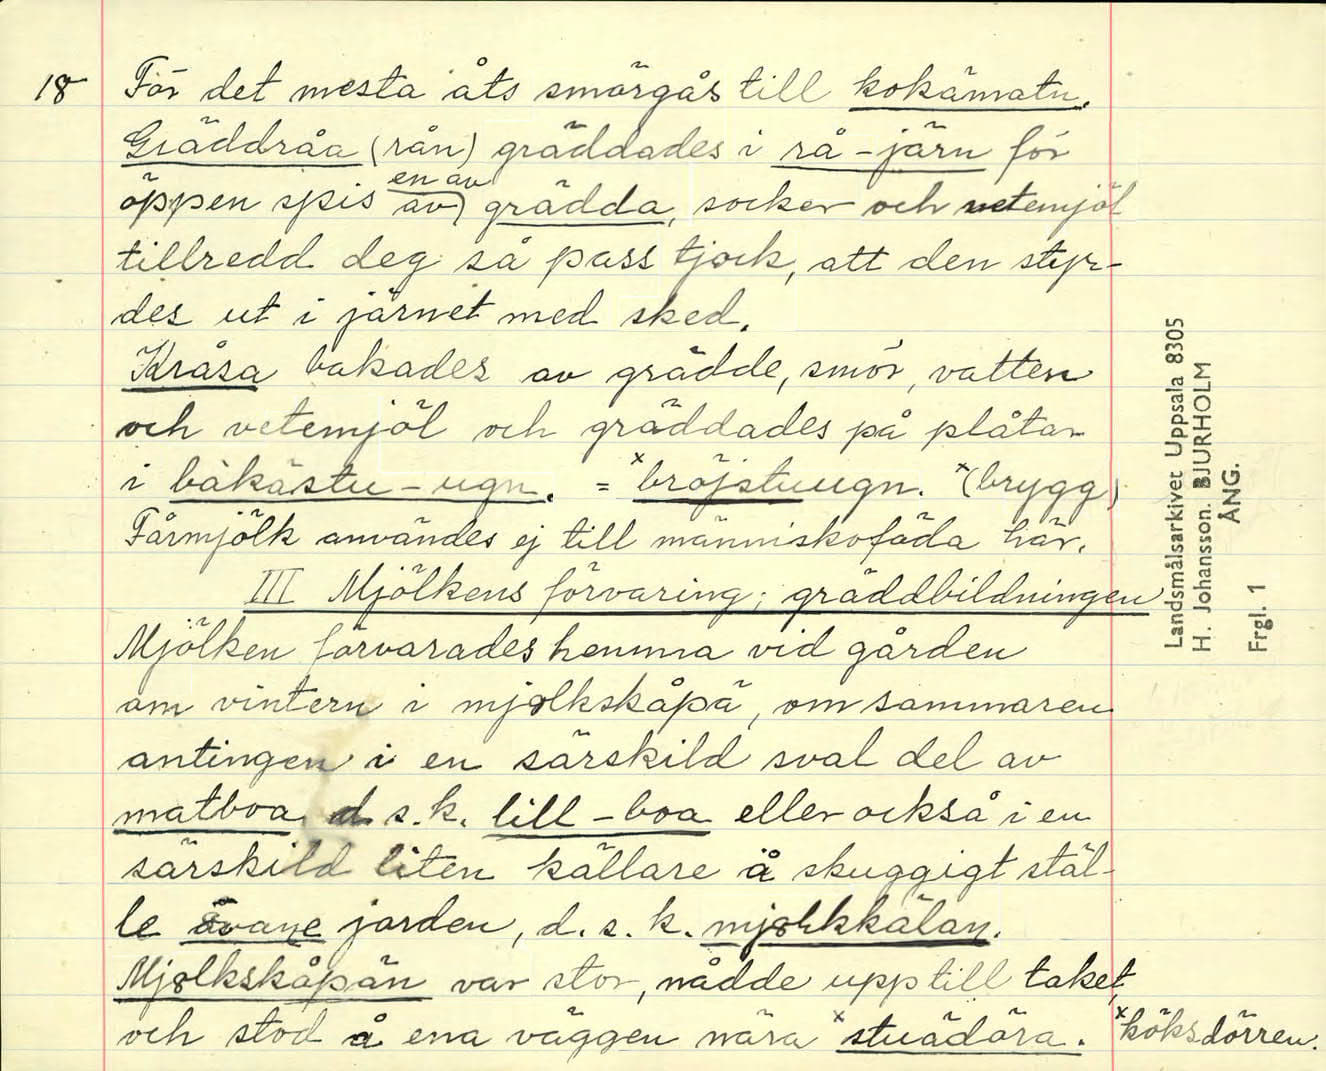 18 För det mesta åts smörgås till kokämatn.
Gräddråa (rån) gräddades i rå-järn för
en av
öppen spis av) grädda, socker och vetemjöl
tillredd deg så pass tjock, att den styr-
des ut i järnet med sked.
Kråsa bakades av grädde, smör, vatten
och vetemjöl och gräddades på plåtar
i bakästu-ugn. = ˣbröjstuugn. ˣ(brygg)
Fårmjölk användes ej till människoföda här.
III Mjölkens förvaring; gräddbildningen
Mjölken förvarades hemma vid gården
om vintern i mjölkskåpä, om sommaren
antingen i en särskild sval del av
matboa d.s.k. lill-boa eller också i en
särskild liten källare å skuggigt stäl-
le jorden, d.s.k. mjölkkälan.
Mjölkskåpän var stor, nådde upp till taket,
och stod å ena väggen nära ˣstuädöra. ˣköksdörren.
Landsmålsarkivet Uppsala 8305
H. Johansson. BJURHOLM
ÅNG.
Frgl. 1